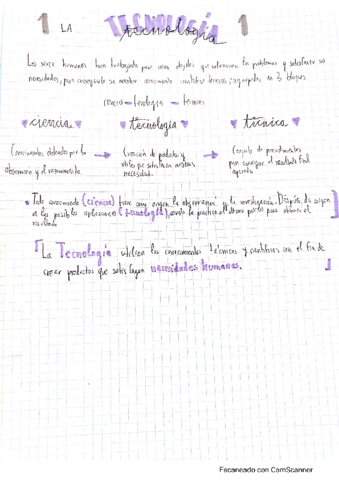 1 LA TECNOLOGÍA 1
tecnología
Los seres humanos han trabajado para crear objetos que solucionen los problemas y satisfacer sus
necesidades, para conseguirlo se necesitan conocimientos científicos técnicos, agrupados en 3 bloques
ciencia - tecnología - técnica
ciencia tecnología técnica
Conocimientos obtenidos por la Creación de productos y Conjunto de procedimientos
observación y el razonamiento útiles que satisfazcan nuestras que consiguen el resultado final
necesidades.
Todo conocimiento (ciencia) tiene como origen la observación y la investigación. Después, da origen
a las posibles aplicaciones (tecnología), siendo la práctica el último para obtener el
resultado
La Tecnología utiliza los conocimientos técnicos y científicos con el fin de
crear productos que satisfagan necesidades humanas.
Escaneado con CamScanner